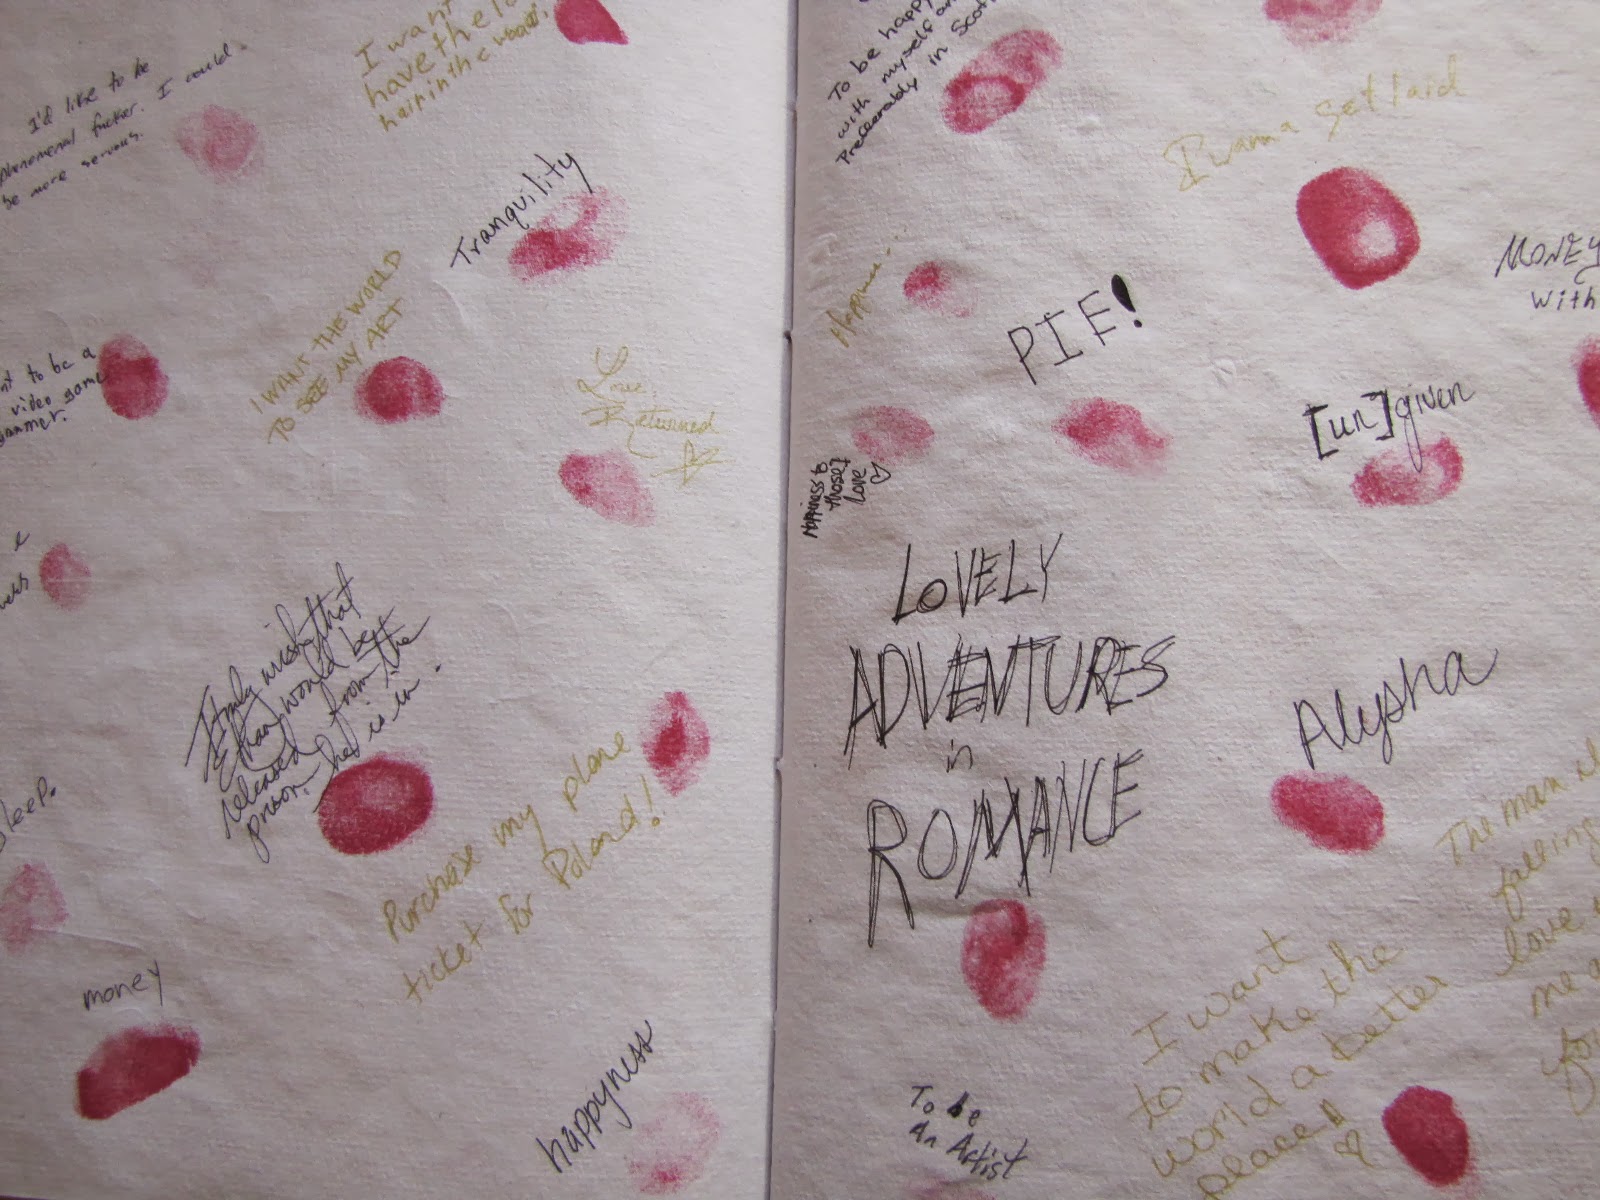 I'd like to be
phenomenal fucker. I could
be more serious.
I want
have the lo
hair in the world.
Tranquility
I WANT THE WORLD
TO SEE MY ART
to be a
video game
Love
Returned
I only wish that
Ethan would be
released from the
prison he is in.
sleep.
Purchase my plane
ticket for Poland!
money
happyness
To be happy
with myself an
Preferably in Scot
I wanna get laid
MONEY
With
PIE!
[un]given
Happiness to
those I
love
LOVELY
ADVENTURES
in
ROMANCE
Alysha
The man
falling
love
me
I want
to make the
world a better
place!!
To be
An Artist